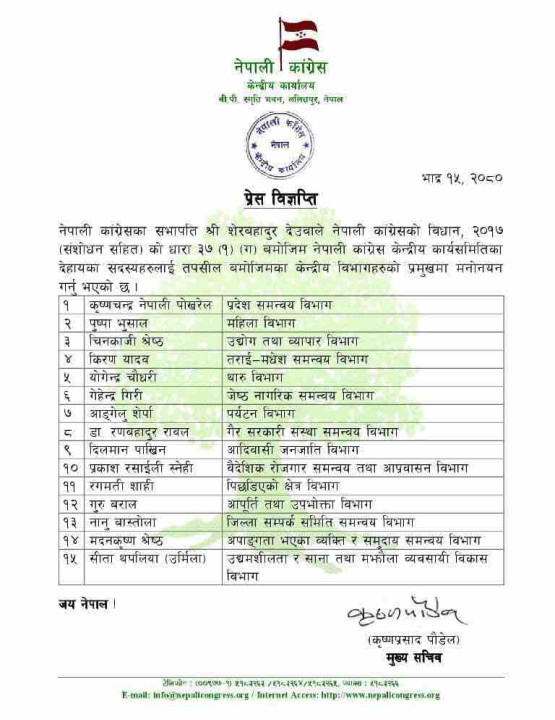 नेपाली कांग्रेस
केन्द्रीय कार्यालय
बी.पी. स्मृति भवन, ललितपुर, नेपाल
नेपाली कांग्रेस
नेपाल
केन्द्रीय कार्यालय
भाद्र १५, २०८०
प्रेस विज्ञप्ति
नेपाली कांग्रेसका सभापति श्री शेरबहादुर देउबाले नेपाली कांग्रेसको विधान, २०१७
(संशोधन सहित) को धारा ३७ (१) (ग) बमोजिम नेपाली कांग्रेस केन्द्रीय कार्यसमितिका
देहायका सदस्यहरुलाई तपसील बमोजिमका केन्द्रीय विभागहरुको प्रमुखमा मनोनयन
गर्नु भएको छ ।
१ कृष्णचन्द्र नेपाली पोखरेल प्रदेश समन्वय विभाग
२ पुष्पा भुसाल महिला विभाग
३ चिनकाजी श्रेष्ठ उद्योग तथा व्यापार विभाग
४ किरण यादव तराई–मधेश समन्वय विभाग
५ योगेन्द्र चौधरी थारु विभाग
६ गेहेन्द्र गिरी जेष्ठ नागरिक समन्वय विभाग
७ आङ्गेलु शेर्पा पर्यटन विभाग
८ डा रणबहादुर रावल गैर सरकारी संस्था समन्वय विभाग
९ दिलमान पाख्रिन आदिवासी जनजाति विभाग
१० प्रकाश रसाईली स्नेही वैदेशिक रोजगार समन्वय तथा आप्रवासन विभाग
११ रंगमती शाही पिछडिएको क्षेत्र विभाग
१२ गुरु बराल आपूर्ति तथा उपभोक्ता विभाग
१३ नानु बास्तोला जिल्ला सम्पर्क समिति समन्वय विभाग
१४ मदनकृष्ण श्रेष्ठ अपाङ्गता भएका व्यक्ति र समुदाय समन्वय विभाग
१५ सीता थपलिया (उर्मिला) उद्यमशीलता र साना तथा मझौला व्यवसायी विकास
विभाग
जय नेपाल ।
(कृष्णप्रसाद पौडेल)
मुख्य सचिव
E-mail: info@nepalicongress.org / Internet Access: http://www.nepalicongress.org